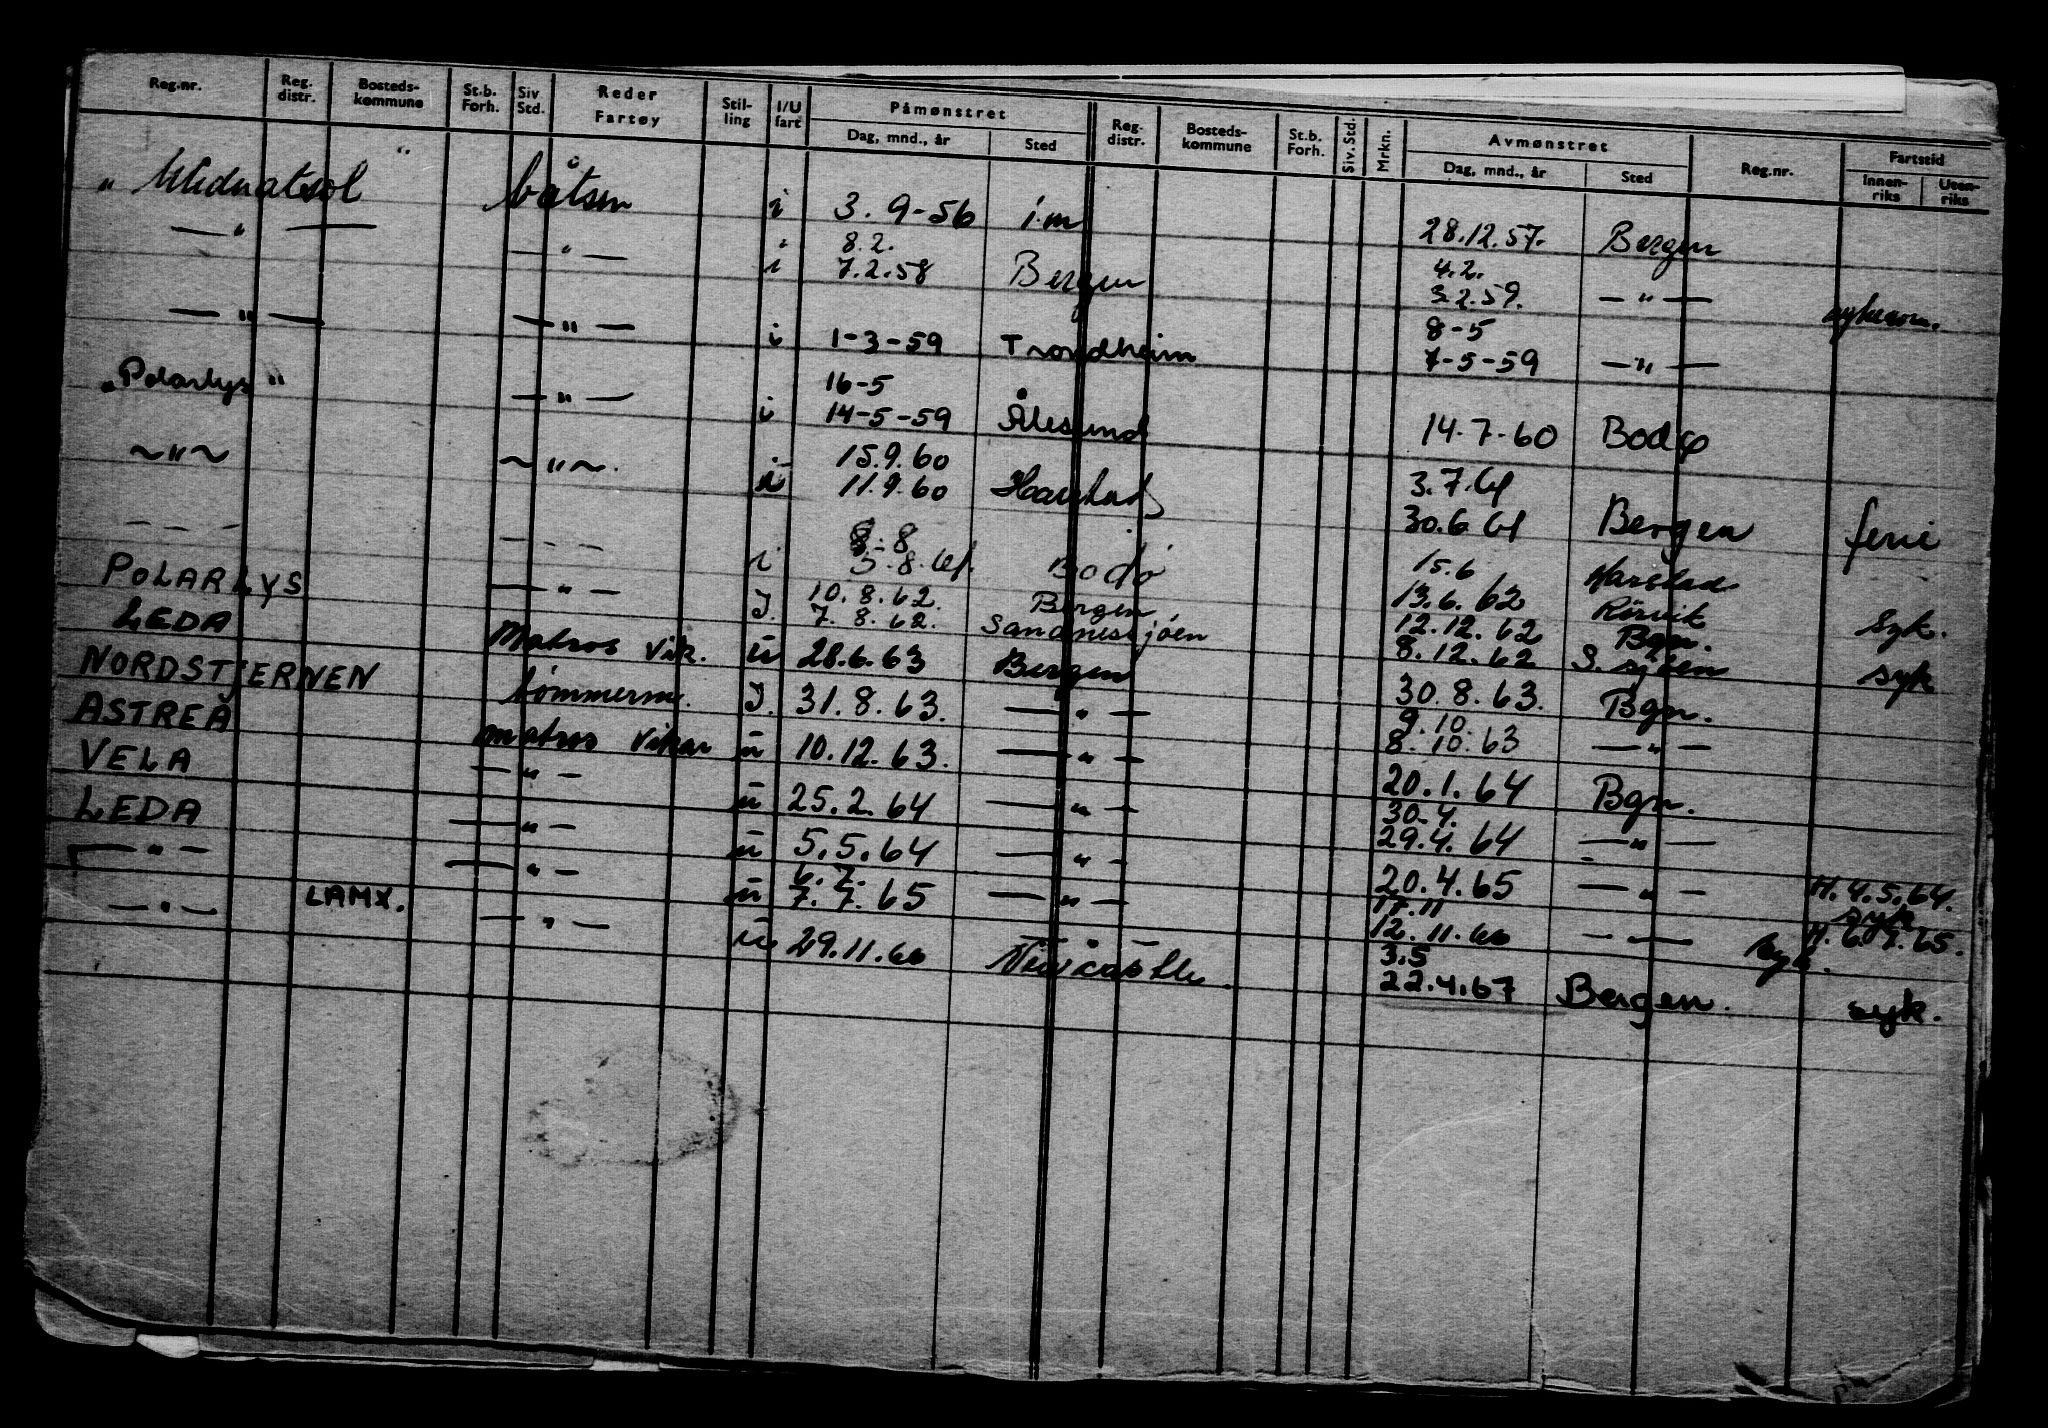 Reg.nr. Reg. distr. Bosteds-kommune St.b. Forh. Siv. Std. Reder Fartøy Stil-ling I/U fart Påmønstret Dag, mnd., år Sted Reg. distr. Bosteds-kommune St.b. Forh. Siv. Std. Mrkn. Avmønstret Dag, mnd., år Sted Reg.nr. Fartstid Innen-riks Uten-riks
" Midnatsol " båtsm i 3.9-56 i.m 28.12.57. Bergen
— " — — " — " 8.2. 4.2.
i 7.2.58 Bergen 3.2.59. — " —
— " — — " — i 1-3-59 Trondheim 8-5
7-5-59 — " —
" Polarlys " — " — 16-5
i 14-5-59 Ålesund 14.7-60 Bodø
~ " ~ ~ " ~. 15.9.60 3.7.61
i 11.9.60 Harstad 30.6 61 Bergen ferie
– – – – – – 8-8 15.6 Harstad
i 5.8.61. Bodø 13.6.62 Rörvik syk.
POLARLYS — " — 10.8.62. Bergen 12.12.62 Bgn.
I. 7.8.62. Sandnessjöen 8.12.62 S. sjöen syk
LEDA Matros vik. u 28.6.63 Bergen 30.8.63. Bgn.
NORDSTJERNEN tømmerm. I. 31.8.63. — " — 9.10.
8.10.63 — " —
ASTREA matros vikar u 10.12.63. — " — 20.1.64 Bgn.
VELA — " — u 25.2.64 — " — 30.4.
29.4.64 — " —
LEDA — " — u 5.5.64 — " — 20.4.65 — " — H. 4.5.64.
syk
— " — — " — 6.7. 17.11
u 7.7.65 — " — 12.11.66 — — H. 6.7.65.
syk.
— " — LAMX. — " — u 29.11.66 Newcastle. 3.5
22.4.67 Bergen. syk.